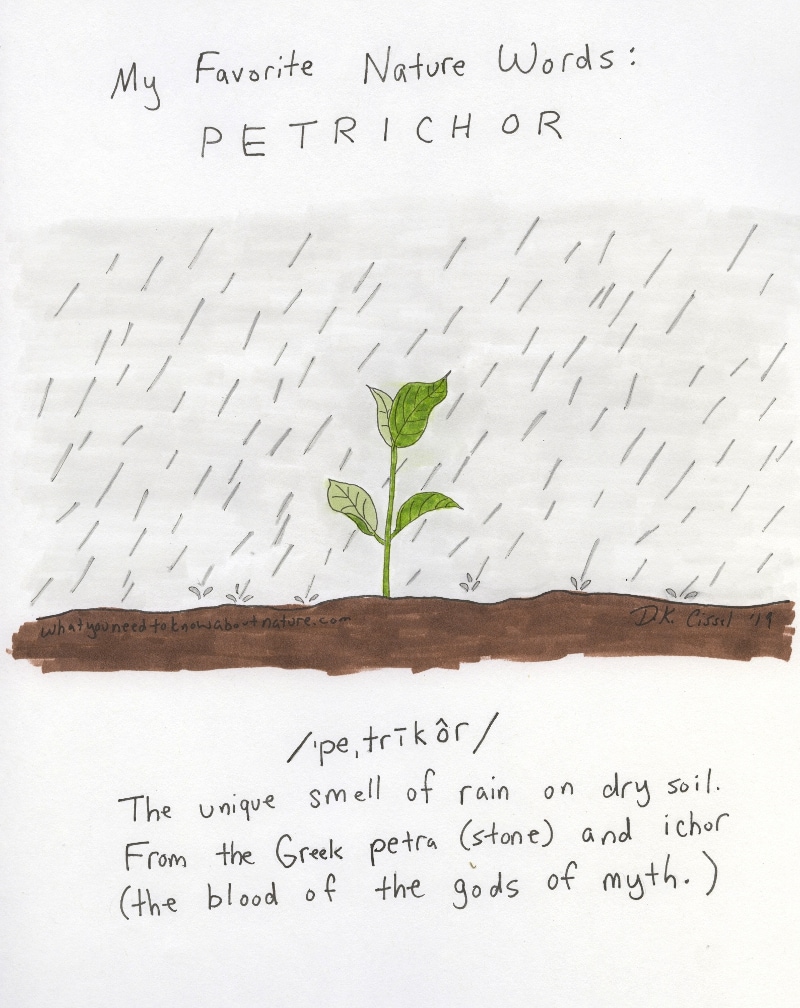 My Favorite Nature Words:
PETRICHOR
whatyouneedtoknowaboutnature.com
D.K. Cissel '19
/ˈpeˌtrīkôr/
The unique smell of rain on dry soil.
From the Greek petra (stone) and ichor
(the blood of the gods of myth.)